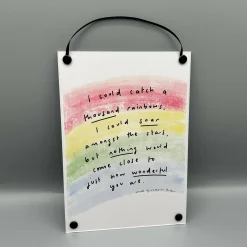 I could catch a
thousand rainbows,
I could soar
amongst the stars,
but nothing would
come close to
just how wonderful
you are.